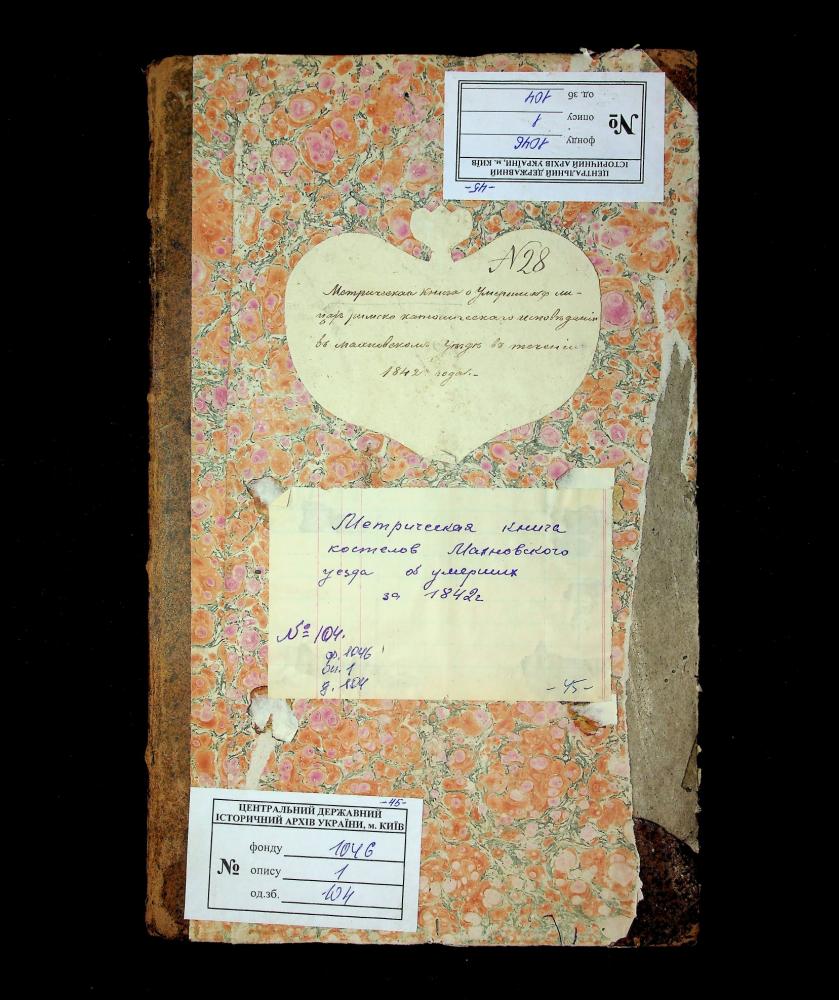 -45-
ЦЕНТРАЛЬНИЙ ДЕРЖАВНИЙ
ІСТОРИЧНИЙ АРХІВ УКРАЇНИ, м. КИЇВ
№
фонду 1046
опису 1
од. зб. 104
N 28
Метрическая книга о Умершихъ ли-
цахъ римско католическаго исповѣданія
въ Махновскомъ Уѣздѣ въ теченіи
1842 года.-
Метрическая книга
костелов Махновского
уезда об умерших
за 1842г
№ 104.
ф. 1046
оп. 1
д. 104
- 45 -
-45-
ЦЕНТРАЛЬНИЙ ДЕРЖАВНИЙ
ІСТОРИЧНИЙ АРХІВ УКРАЇНИ, м. КИЇВ
№
фонду 1046
опису 1
од.зб. 104